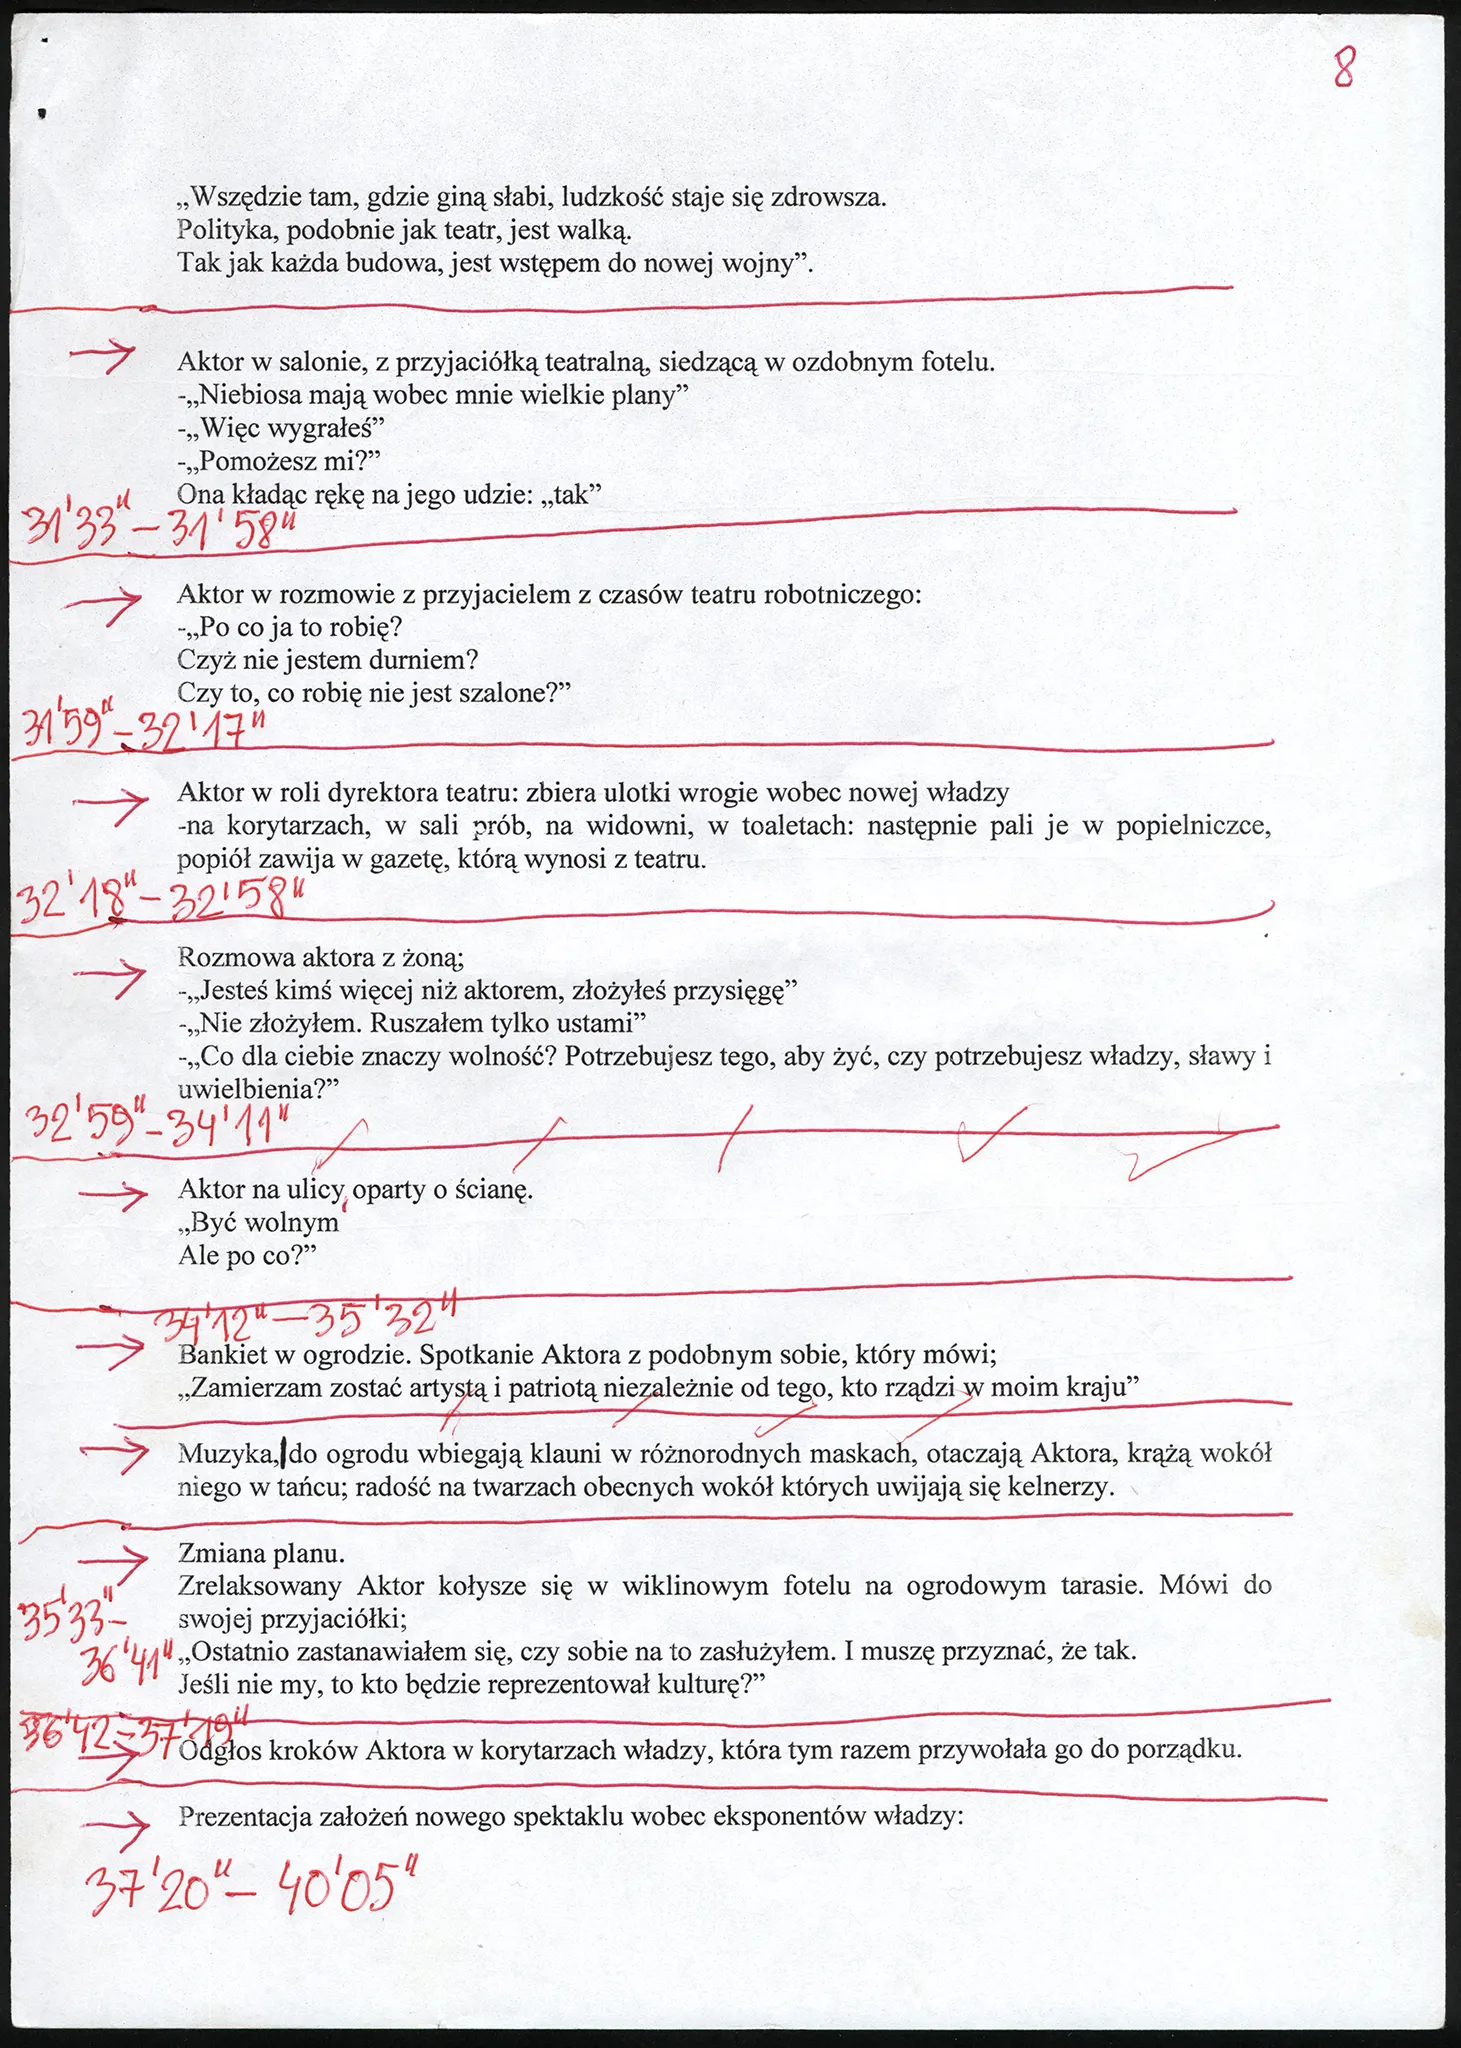 8
„Wszędzie tam, gdzie giną słabi, ludzkość staje się zdrowsza.
Polityka, podobnie jak teatr, jest walką.
Tak jak każda budowa, jest wstępem do nowej wojny”.
Aktor w salonie, z przyjaciółką teatralną, siedzącą w ozdobnym fotelu.
-„Niebiosa mają wobec mnie wielkie plany”
-„Więc wygrałeś”
-„Pomożesz mi?”
Ona kładąc rękę na jego udzie: „tak”
31'33" – 31'58"
Aktor w rozmowie z przyjacielem z czasów teatru robotniczego:
-„Po co ja to robię?
Czyż nie jestem durniem?
Czy to, co robię nie jest szalone?”
31'59" – 32'17"
Aktor w roli dyrektora teatru: zbiera ulotki wrogie wobec nowej władzy
-na korytarzach, w sali prób, na widowni, w toaletach: następnie pali je w popielniczce,
popiół zawija w gazetę, którą wynosi z teatru.
32'18" – 32'58"
Rozmowa aktora z żoną;
-„Jesteś kimś więcej niż aktorem, złożyłeś przysięgę”
-„Nie złożyłem. Ruszałem tylko ustami”
-„Co dla ciebie znaczy wolność? Potrzebujesz tego, aby żyć, czy potrzebujesz władzy, sławy i
uwielbienia?”
32'59" – 34'11"
Aktor na ulicy, oparty o ścianę.
„Być wolnym
Ale po co?”
34'12" – 35'32"
Bankiet w ogrodzie. Spotkanie Aktora z podobnym sobie, który mówi;
„Zamierzam zostać artystą i patriotą niezależnie od tego, kto rządzi w moim kraju”
Muzyka, do ogrodu wbiegają klauni w różnorodnych maskach, otaczają Aktora, krążą wokół
niego w tańcu; radość na twarzach obecnych wokół których uwijają się kelnerzy.
Zmiana planu.
Zrelaksowany Aktor kołysze się w wiklinowym fotelu na ogrodowym tarasie. Mówi do
swojej przyjaciółki;
35'33" –
36'41"
„Ostatnio zastanawiałem się, czy sobie na to zasłużyłem. I muszę przyznać, że tak.
Jeśli nie my, to kto będzie reprezentował kulturę?”
36'42 – 37'19"
Odgłos kroków Aktora w korytarzach władzy, która tym razem przywołała go do porządku.
Prezentacja założeń nowego spektaklu wobec eksponentów władzy:
37'20" – 40'05"